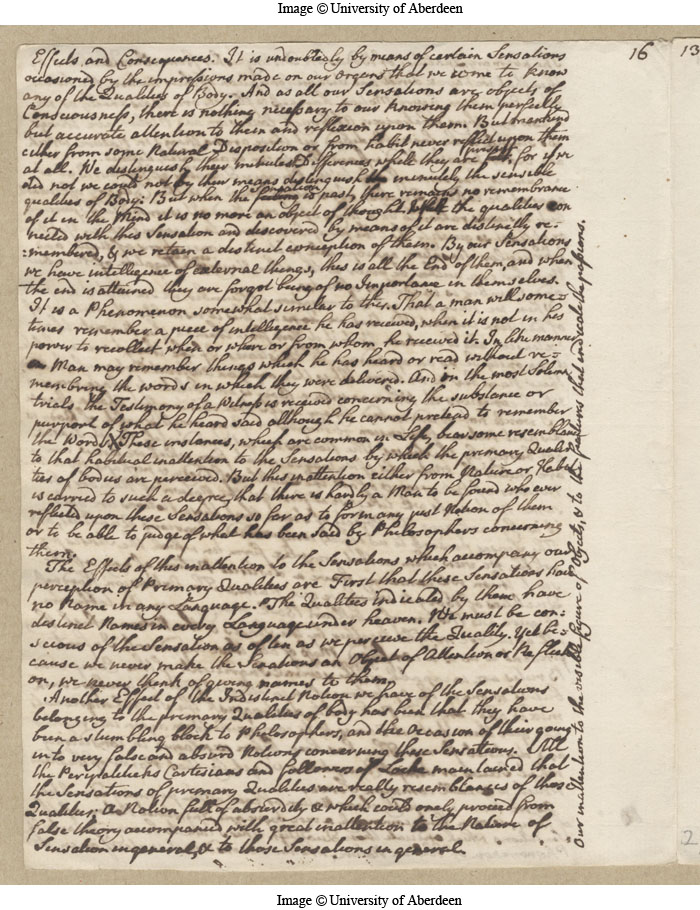 Image © University of Aberdeen
16
13
Effects and Consequences. It is undoubtedly by means of certain Sensations
occasioned by the impressions made on our organs that we come to know
any of the Qualities of Body. And as all our Sensations are objects of
Consciousness, there is nothing necessary to our knowing them perfectly
but accurate attention to them and reflexion upon them. But mankind
either from some Natural Disposition or from habit never reflect upon them
at all. We distinguish their minutest Differences while they are present. for if we
did not we could not by their means distinguish minutely the sensible
qualities of Body: But when the sensation is past, there remains no remembrance
of it in the Mind it is no more an object of thought the qualities con
nected with this Sensation and discovered by means of it are distinctly re-
-membered, & we retain a distinct conception of them. By our Sensations
we have intelligence of external things, this is all the End of them, and when
the end is attained they are forgot being of no Importance in themselves.
It is a Phenomenon somewhat similar to this. That a man will some-
times remember a piece of intelligence he has received, when it is not in his
power to recollect when or where or from whom he received it. In like manner
a Man may remember things which he has heard or read without re-
membring the words in which they were delivered. And in the most Solemn
trials the Testimony of a Witness is received concerning the substance or
purport of what he heard said although he cannot pretend to remember
the Words. X These instances, which are common in Life, bear some resemblance
to that habitual inattention to the Sensations by which the primary Quali
ties of bodies are perceived. But this inattention either from Nature or Habit
is carried to such a degree, that there is hardly a Man to be found who ever
reflected upon these Sensations so far as to form any just Notion of them
or to be able to judge of what has been said by Philosophers concerning
them.
The Effects of this inattention to the Sensations which accompany our
perception of Primary Qualities are First that these Sensations have
no Name in any Language. The Qualities indicated by them have
distinct Names in every Language under heaven. We must be con-
scious of the Sensation as often as we perceive the Quality. Yet be-
cause we never make the Sensations an Object of Attention or Reflecti
on, we never think of giving names to them.
Another Effect of the Indistinct Notion we have of the Sensations
belonging to the primary Qualities of body has been that they have
been a stumbling block to Philosophers, and the Occasion of their going
into very false and absurd Notions concerning these Sensations. All
the Peripateticks Cartesians and followers of Locke maintained that
the Sensations of primary Qualities are really resemblances of those
Qualities; A Notion full of absurdity & which could onely proceed from
false theory accompanied with great inattention to the Nature of
Sensation in general, & to those Sensations in general.
Our inattention to the visible figure of Objects, & to the features that indicate the passions.
2
Image © University of Aberdeen